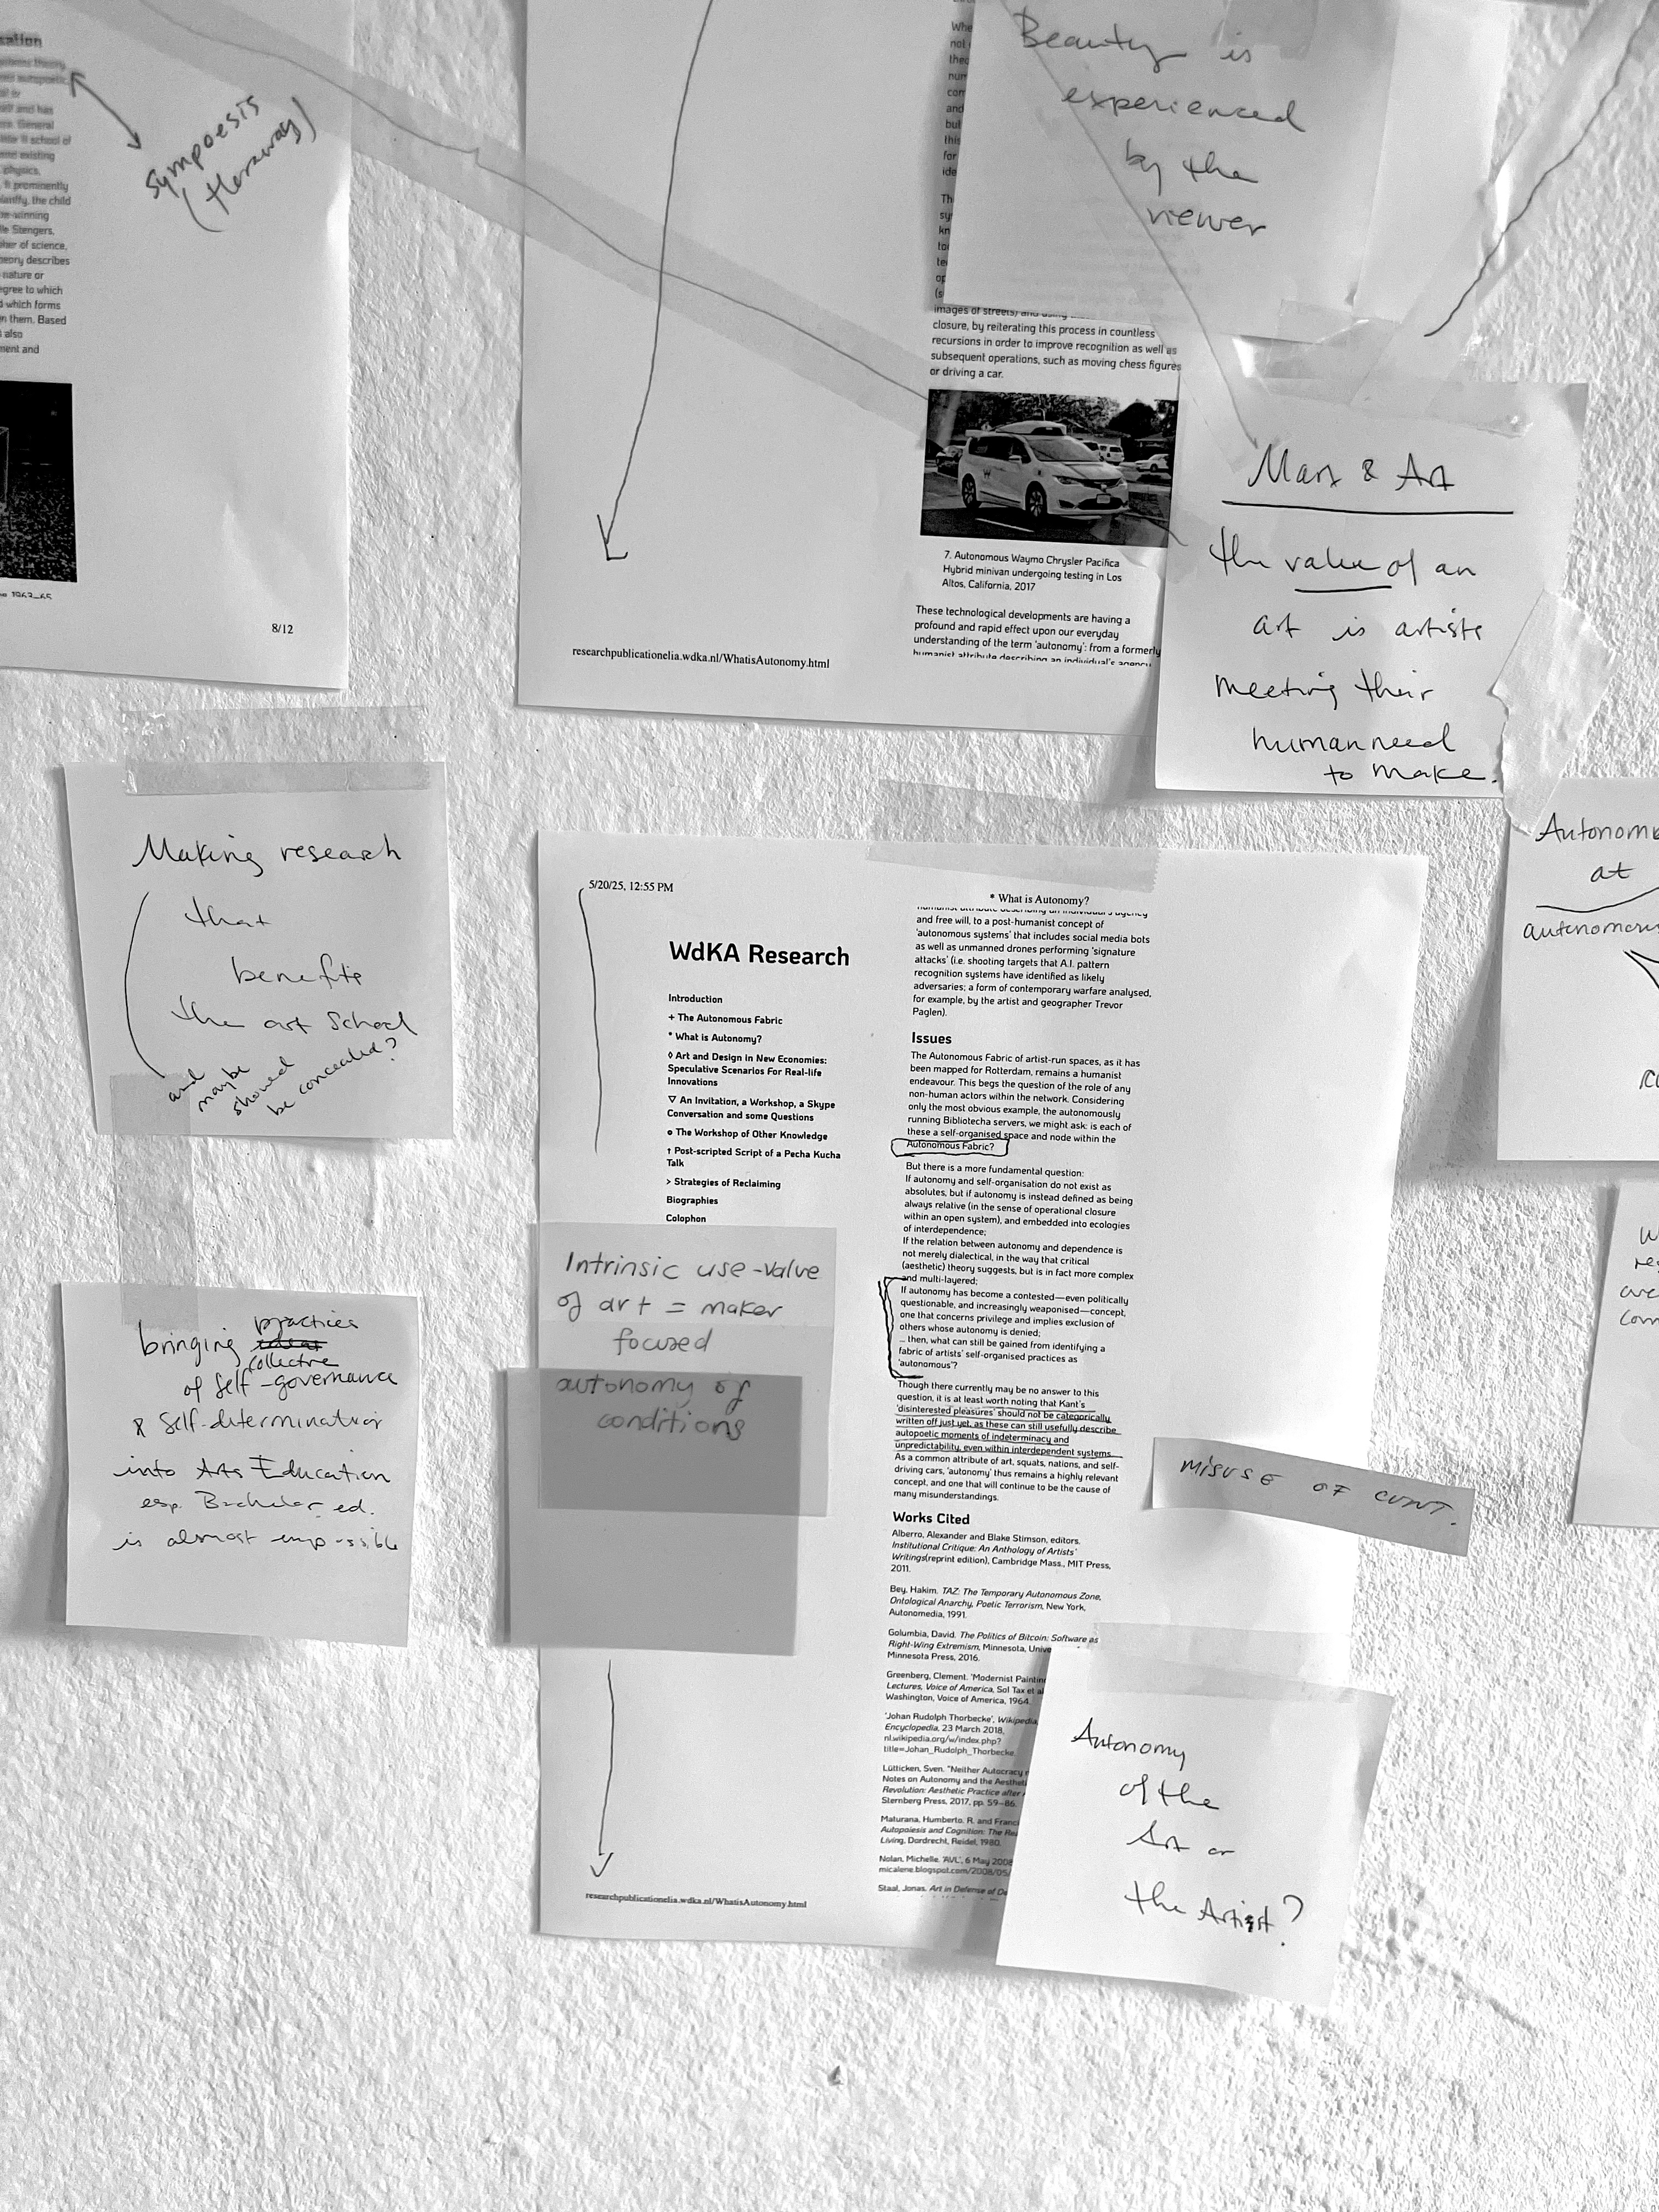 sation
self and has
era. General
school of
and existing
physics.
It prominently
the child
-winning
lle Stengers,
pher of science,
heory describes
nature or
egree to which
d which forms
n them. Based
also
ment and
8/12
sympoesis
(Haraway)
researchpublicationelia.wdka.nl/WhatisAutonomy.html
Beauty is
experienced
by the
viewer
images of streets) and using
closure, by reiterating this process in countless
recursions in order to improve recognition as well as
subsequent operations, such as moving chess figures
or driving a car.
7. Autonomous Waymo Chrysler Pacifica
Hybrid minivan undergoing testing in Los
Altos, California, 2017
These technological developments are having a
profound and rapid effect upon our everyday
understanding of the term 'autonomy': from a formerly
humanist attribute describing an individual's agency
Marx & Art
the value of an
art is artists
meeting their
human need
to make.
Making research
that
benefits
the art School
and
maybe
showed
be concealed?
bringing practices
collective
of self-governance
& self-determination
into Arts Education
esp. Bachelor ed.
is almost impossible
5/20/25, 12:55 PM
* What is Autonomy?
WdKA Research
Introduction
+ The Autonomous Fabric
* What is Autonomy?
◊ Art and Design in New Economies:
Speculative Scenarios For Real-life
Innovations
▽ An Invitation, a Workshop, a Skype
Conversation and some Questions
o The Workshop of Other Knowledge
↑ Post-scripted Script of a Pecha Kucha
Talk
> Strategies of Reclaiming
Biographies
Colophon
humanist attribute describing an individual's agency
and free will, to a post-humanist concept of
'autonomous systems' that includes social media bots
as well as unmanned drones performing 'signature
attacks' (i.e. shooting targets that A.I. pattern
recognition systems have identified as likely
adversaries; a form of contemporary warfare analysed,
for example, by the artist and geographer Trevor
Paglen).
Issues
The Autonomous Fabric of artist-run spaces, as it has
been mapped for Rotterdam, remains a humanist
endeavour. This begs the question of the role of any
non-human actors within the network. Considering
only the most obvious example, the autonomously
running Bibliotecha servers, we might ask: is each of
these a self-organised space and node within the
Autonomous Fabric?
But there is a more fundamental question:
If autonomy and self-organisation do not exist as
absolutes, but if autonomy is instead defined as being
always relative (in the sense of operational closure
within an open system), and embedded into ecologies
of interdependence;
If the relation between autonomy and dependence is
not merely dialectical, in the way that critical
(aesthetic) theory suggests, but is in fact more complex
and multi-layered;
If autonomy has become a contested—even politically
questionable, and increasingly weaponised—concept,
one that concerns privilege and implies exclusion of
others whose autonomy is denied;
... then, what can still be gained from identifying a
fabric of artists' self-organised practices as
'autonomous'?
Though there currently may be no answer to this
question, it is at least worth noting that Kant's
'disinterested pleasures' should not be categorically
written off just yet, as these can still usefully describe
autopoetic moments of indeterminacy and
unpredictability, even within interdependent systems.
As a common attribute of art, squats, nations, and self-
driving cars, 'autonomy' thus remains a highly relevant
concept, and one that will continue to be the cause of
many misunderstandings.
Works Cited
Alberro, Alexander and Blake Stimson, editors.
Institutional Critique: An Anthology of Artists'
Writings(reprint edition), Cambridge Mass., MIT Press,
2011.
Bey, Hakim. TAZ: The Temporary Autonomous Zone,
Ontological Anarchy, Poetic Terrorism, New York,
Autonomedia, 1991.
Golumbia, David. The Politics of Bitcoin: Software as
Right-Wing Extremism, Minnesota, Unive
Minnesota Press, 2016.
Greenberg, Clement. 'Modernist Painting
Lectures, Voice of America, Sol Tax et al
Washington, Voice of America, 1964.
'Johan Rudolph Thorbecke', Wikipedia,
Encyclopedia, 23 March 2018,
nl.wikipedia.org/w/index.php?
title=Johan_Rudolph_Thorbecke.
Lütticken, Sven. "Neither Autocracy n
Notes on Autonomy and the Aestheti
Revolution: Aesthetic Practice after
Sternberg Press, 2017, pp. 59–86.
Maturana, Humberto. R. and Franci
Autopoiesis and Cognition: The Rea
Living, Dordrecht, Reidel, 1980.
Nolan, Michelle. 'AVL', 6 May 2008
micalene.blogspot.com/2008/05/
Staal, Jonas. Art in Defense of De
Intrinsic use-value
of art = maker
focused
autonomy of
conditions
misuse of
Autonomy
of the
Art or
the Artist?
researchpublicationelia.wdka.nl/WhatisAutonomy.html
at